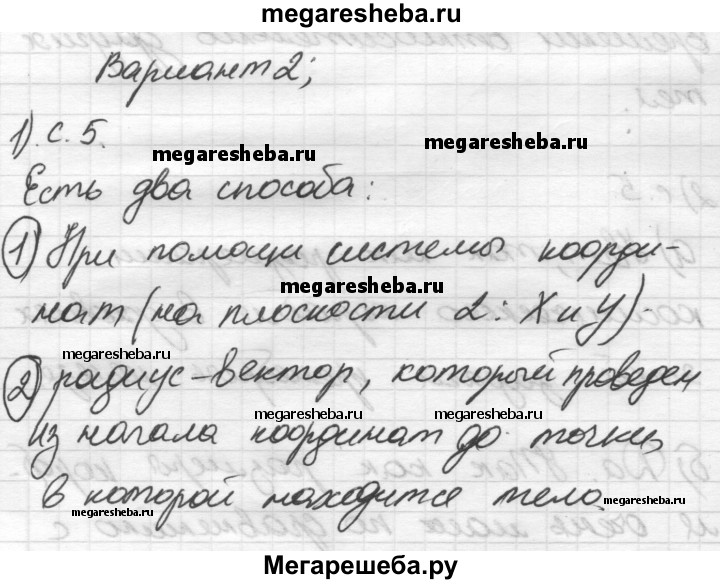 megaresheba.ru
Вариант 2;
1). с. 5.
megaresheba.ru
megaresheba.ru
Есть два способа:
1) При помощи системы коорди-
megaresheba.ru
нат (на плоскости 2: X и У).
megaresheba.ru
2) радиус-вектор, который проведен
megaresheba.ru
megaresheba.ru
из начала координат до точки,
в которой находится тело.
megaresheba.ru
megaresheba.ru
megaresheba.ru
Мегарешеба.ру